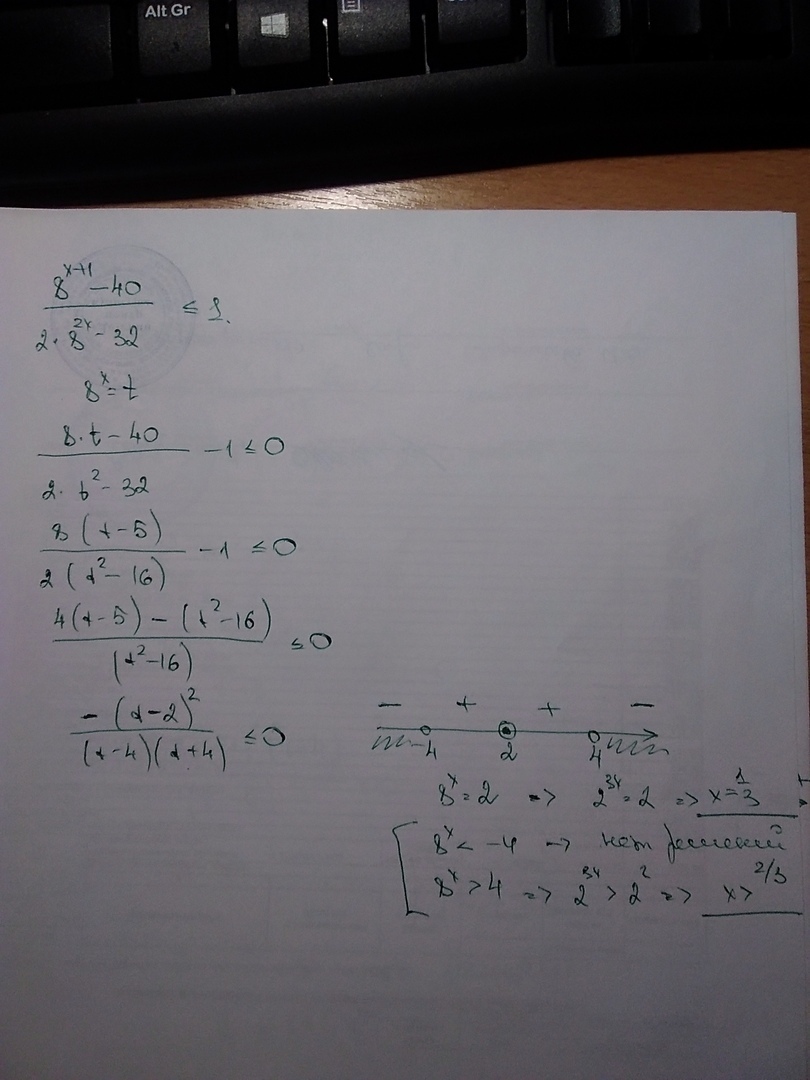 Alt Gr
8^(x+1) − 40 / 2·8^(2x) − 32 ≤ 1.
8^x = t
8·t − 40 / 2·t² − 32 − 1 ≤ 0
8(t−5) / 2(t²−16) − 1 ≤ 0
4(t−5) − (t²−16) / (t²−16) ≤ 0
−(t−2)² / (t−4)(t+4) ≤ 0
− + + −
−4 2 4
8^x = 2 => 2^(3x) = 2 => x = 1/3
8^x < −4 => нет решений
8^x > 4 => 2^(3x) > 2² => x > 2/3